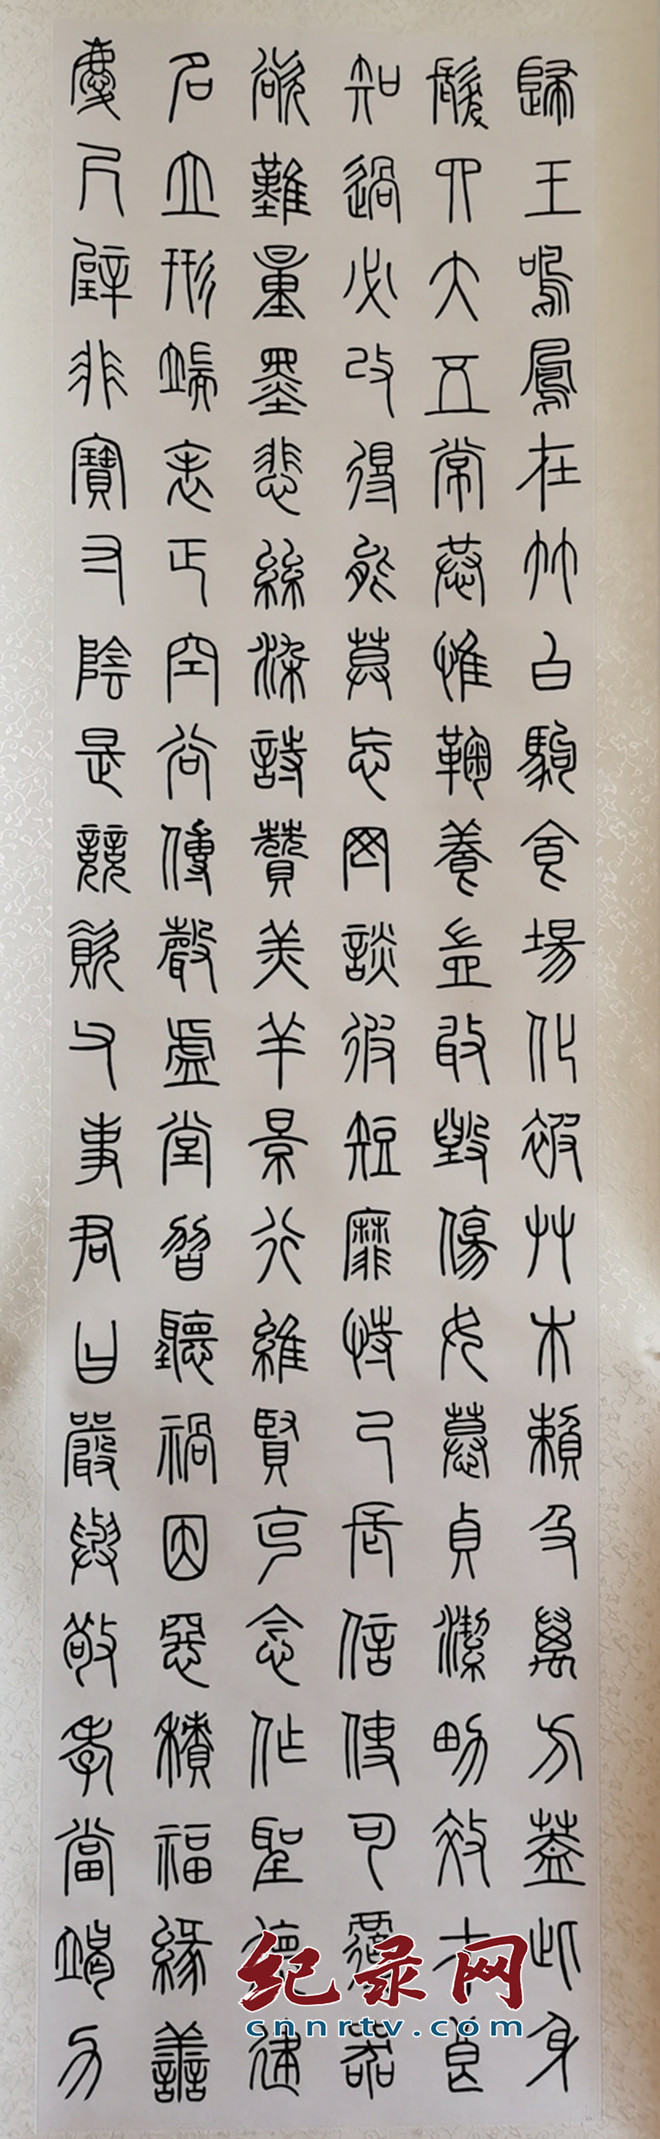 歸王鳴鳳在竹白駒食場化被艸木賴及萬方蓋此身
髮四大五常恭惟鞠養豈敢毀傷女慕貞潔男效才良
知過必改得能莫忘罔談彼短靡恃己長信使可覆器
欲難量墨悲絲染詩贊羔羊景行維賢克念作聖德建
名立形端表正空谷傳聲虛堂習聽禍因惡積福緣善
慶尺璧非寶寸陰是競資父事君曰嚴與敬孝當竭力
纪录网
cnnrtv.com